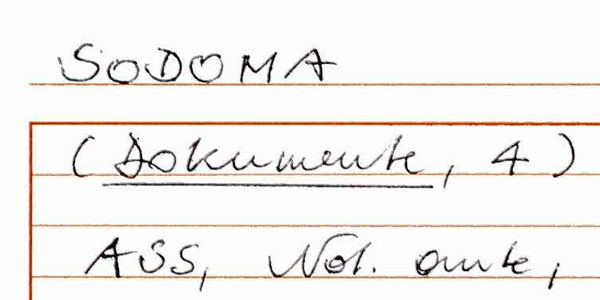 SODOMA
(Dokumente, 4)
ASS, Not. ante,